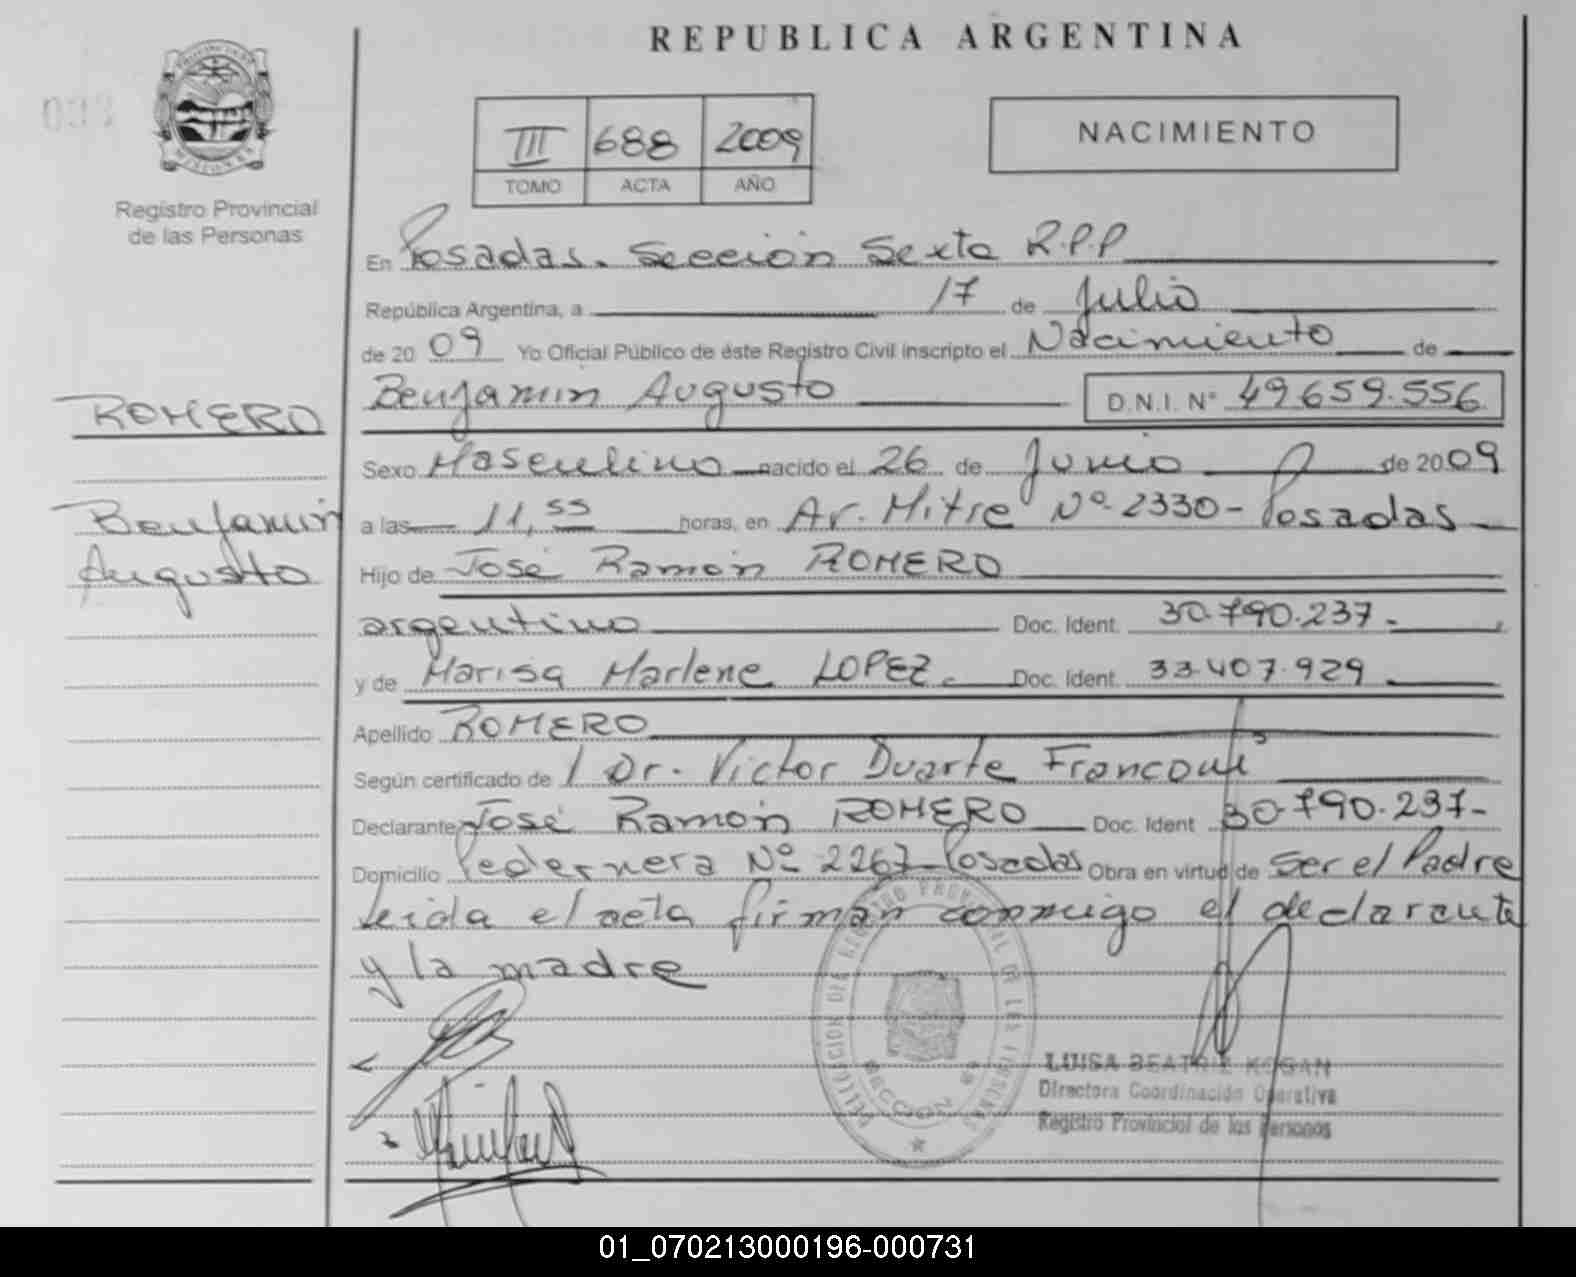 REPUBLICA ARGENTINA
PROVINCIA DE
MISIONES
Registro Provincial
de las Personas
III 688 2009
TOMO ACTA AÑO
NACIMIENTO
En Posadas. Sección Sexta R.P.P
República Argentina, a 17 de Julio
de 20 09 Yo Oficial Público de éste Registro Civil inscripto el Nacimiento de
Benjamin Augusto D.N.I. N° 49.659.556
ROMERO
Sexo Masculino nacido el 26 de Junio de 2009
Benjamin
a las 11,55 horas, en Av. Mitre Nº 2330 - Posadas
Augusto
Hijo de José Ramón ROMERO
argentino Doc. Ident. 30.790.237.-
y de Marisa Marlene LOPEZ. Doc. Ident. 33.407.929
Apellido ROMERO
Según certificado de / Dr. Victor Duarte
Declarante José Ramón ROMERO Doc. Ident 30.790.237-
Domicilio Pedernera Nº 2267 - Posadas Obra en virtud de ser el Padre
leida el acta firman conmigo el declarante
y la madre
LUISA BEATRIZ KOGAN
Directora Coordinación Operativa
Registro Provincial de las Personas
01_070213000196-000731